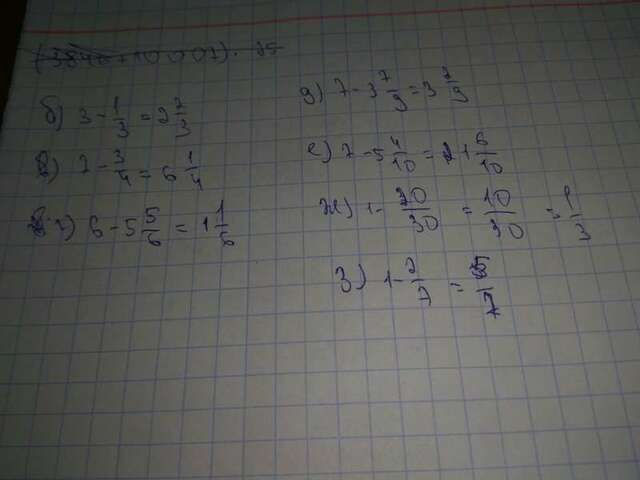 б) 3 - 1/3 = 2 2/3
в) 7 - 3/4 = 6 1/4
г) 6 - 5 5/6 = 1 1/6
д) 7 - 3 7/9 = 3 2/9
е) 7 - 5 4/10 = 1 6/10
ж) 1 - 20/30 = 10/30 = 1/3
з) 1 - 2/7 = 5/7